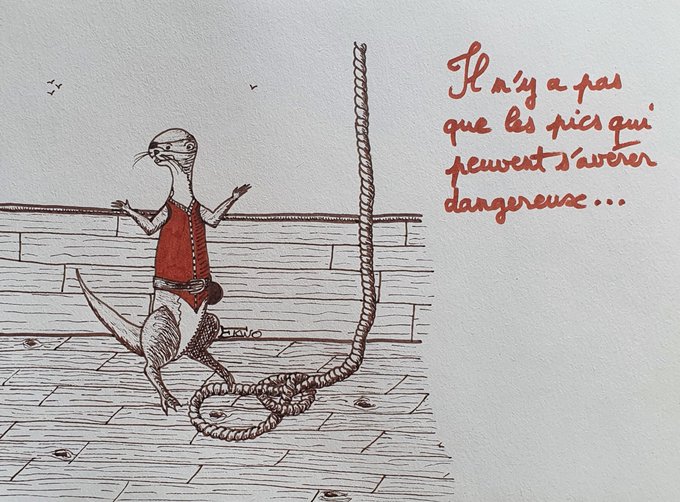 Il n'y a pas
que les pics qui
peuvent s'avérer
dangereux...
EKWO